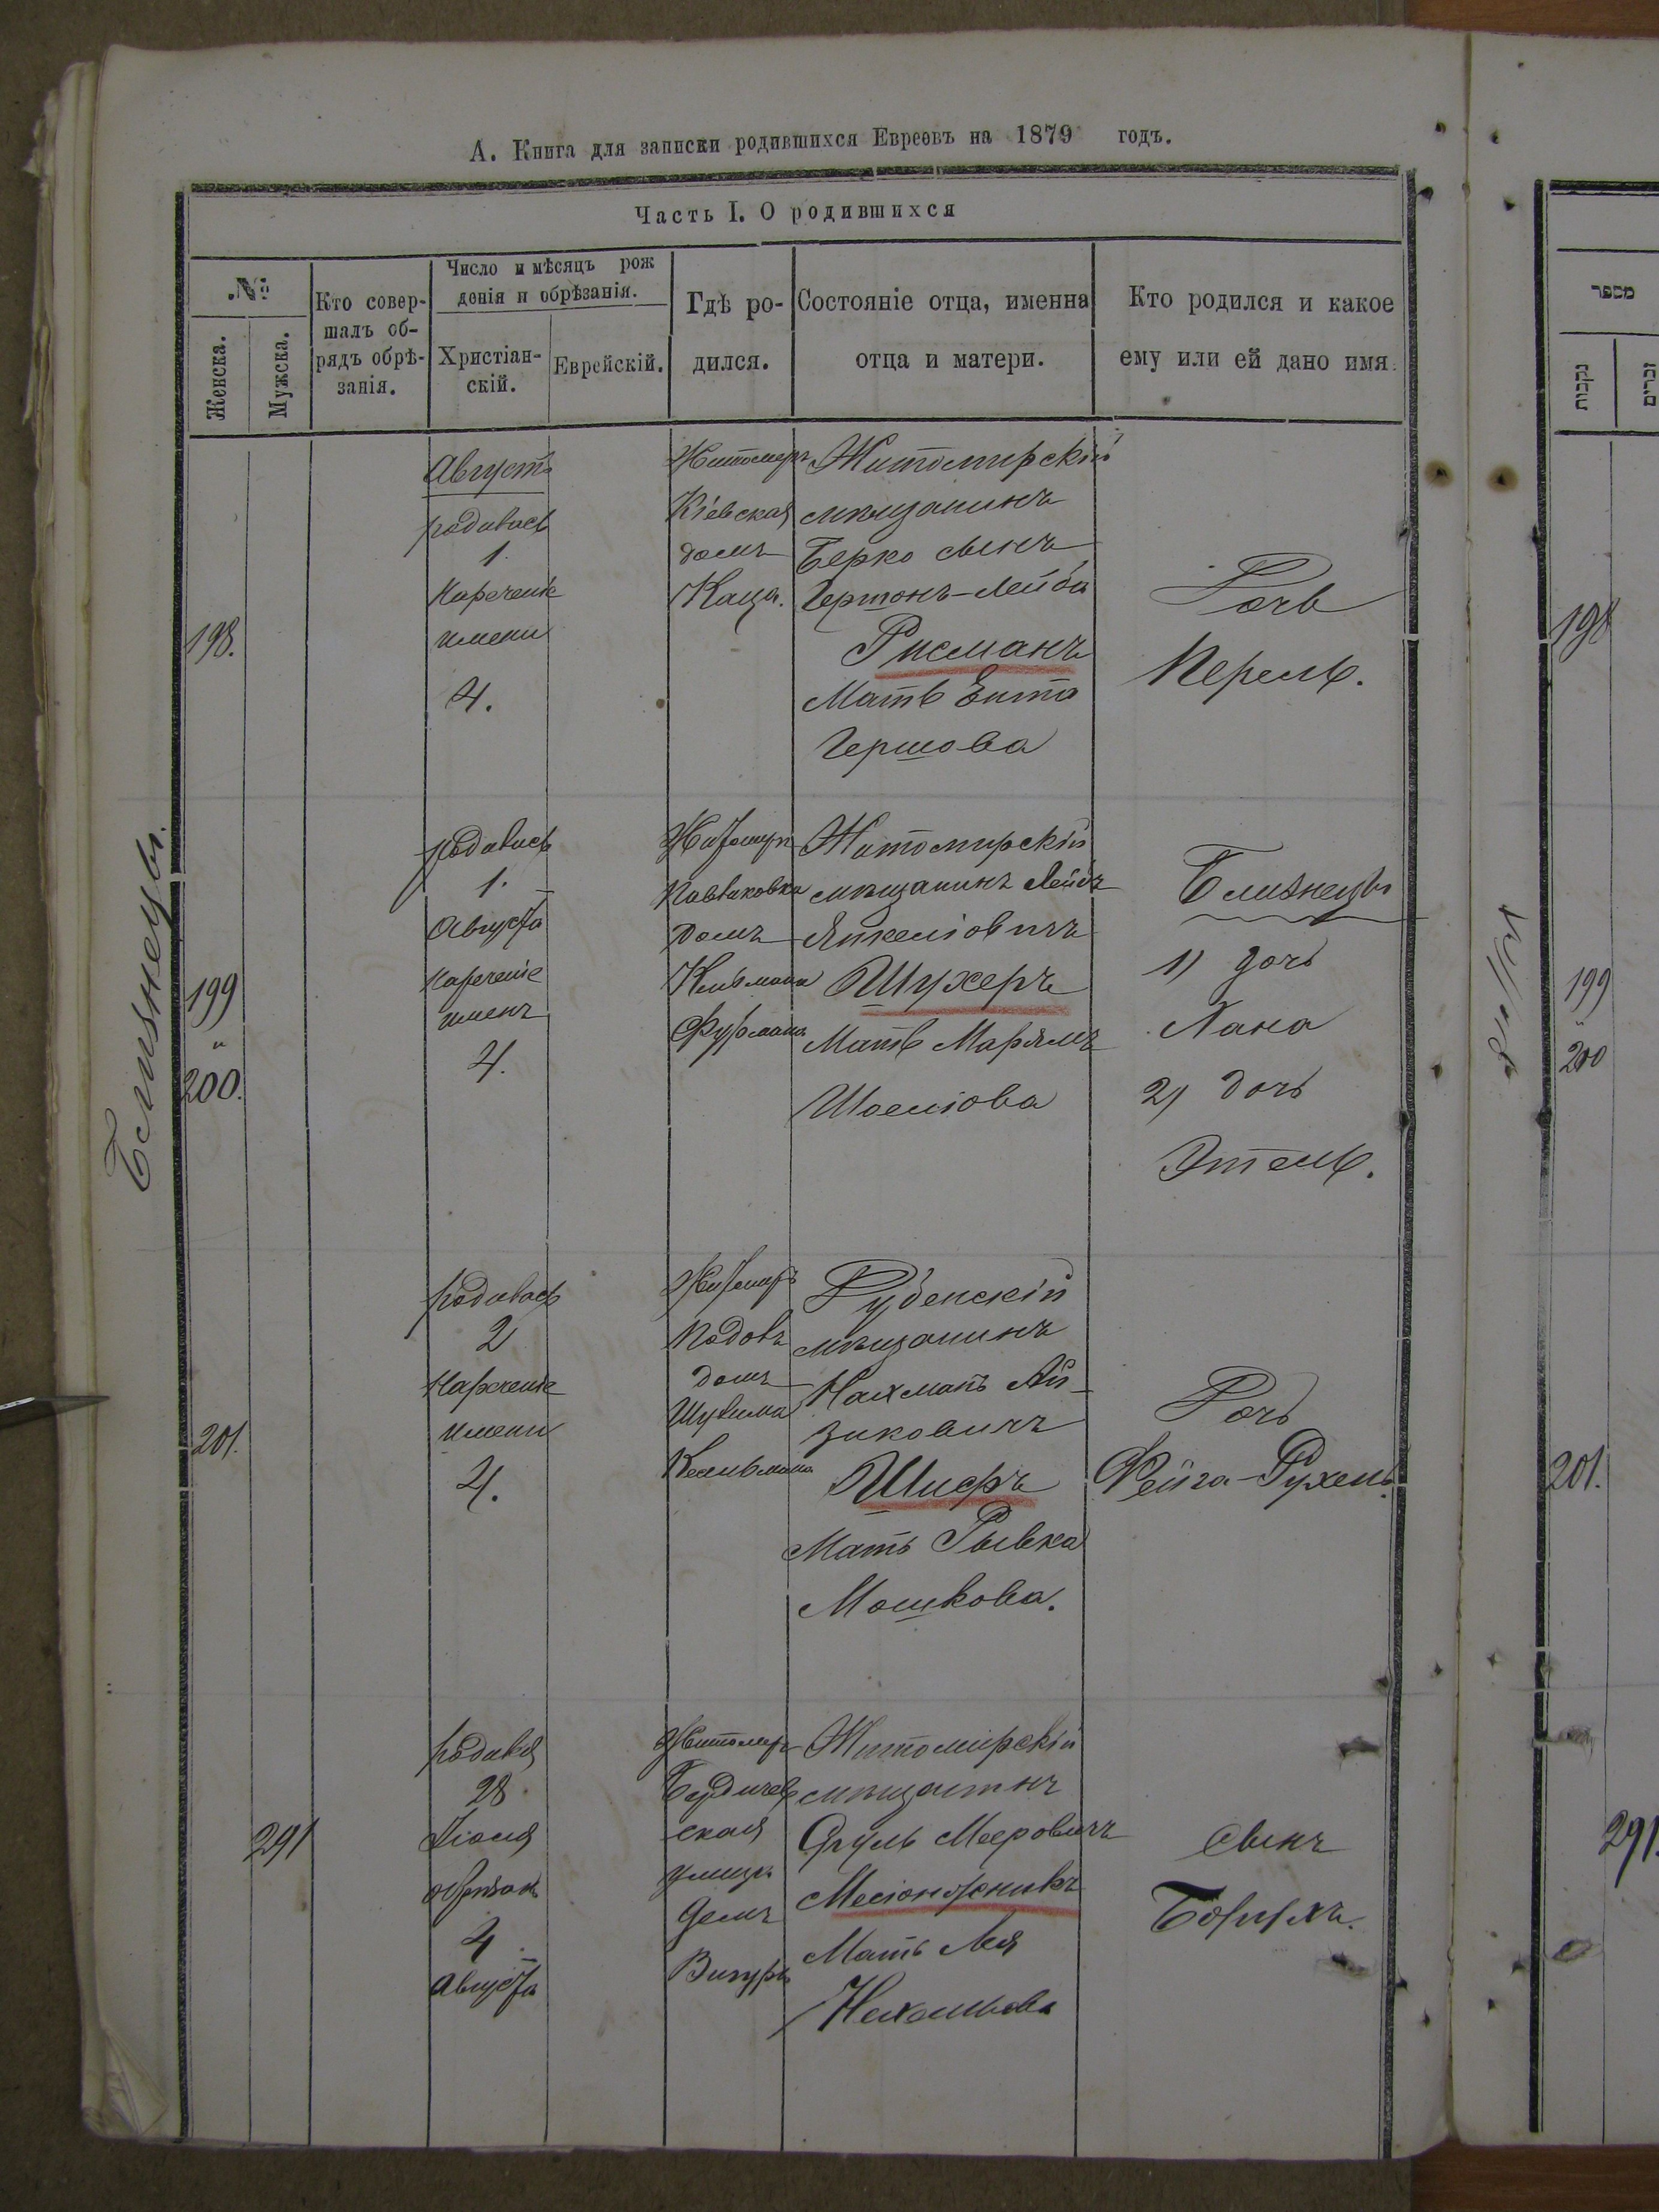 А. Книга для записки родившихся Евреовъ на 1879 годъ.
Часть I. О родившихся
№
Женска.
Мужска.
Кто совер-
шалъ об-
рядъ обрѣ-
занія.
Число и мѣсяцъ рож
денія и обрѣзанія.
Христіан-
скій.
Еврейскій.
Гдѣ ро-
дился.
Состояніе отца, именна
отца и матери.
Кто родился и какое
ему или ей дано имя.
מספר
נקבות
זכרים
198.
Августъ
родилась
1.
Нареченіе
имени
4.
Житомиръ
Кіевская
домъ
Каца.
Житомирскій
мѣщанинъ
Берко сынъ
Гершонъ-Лейбы
Рисманъ
Мать Ента
Гершова
Дочь
Перель.
198
Близнецы.
199
"
200.
родилась
1.
Августа
Нареченіе
именъ
4.
Житомиръ
Павликовка
домъ
Кельмана
Фурмана
Житомирскій
мѣщанинъ Лейбъ
Янкеліовичъ
Шухеръ
Мать Марьямъ
Шоеліова
Близнецы
1) дочь
Хана
2) дочь
Этель.
199
"
200
201.
родилась
2
Нареченіе
имени
4.
Житомиръ
Подолъ
домъ
Шулима
Кельмана
Дубенскій
мѣщанинъ
Нахманъ Ай-
зиковичъ
Шифъ
Мать Рывка
Мошкова.
Дочь
Фейга-Рухель.
201.
291
родился
28
Іюля
обрѣзанъ
4
Августа
Житомиръ
Бердичев
ская
улица
домъ
Житомірскій
мѣщанинъ
Сруль Мееровичъ
Мать Лея
Сынъ
Борухъ.
291.